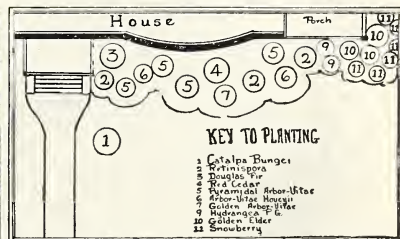 House
Porch
11
11
10
11
3
5
5
4
5
2
9
10
10
2
5
6
5
7
2
6
9
11
11
11
1
KEY TO PLANTING
1 Catalpa Bungei
2 Retinispora
3 Douglas Fir
4 Red Cedar
5 Pyramidal Arbor-Vitae
6 Arbor-Vitae Hoveyii
7 Golden Arbor-Vitae
9 Hydrangea P.G.
10 Golden Elder
11 Snowberry